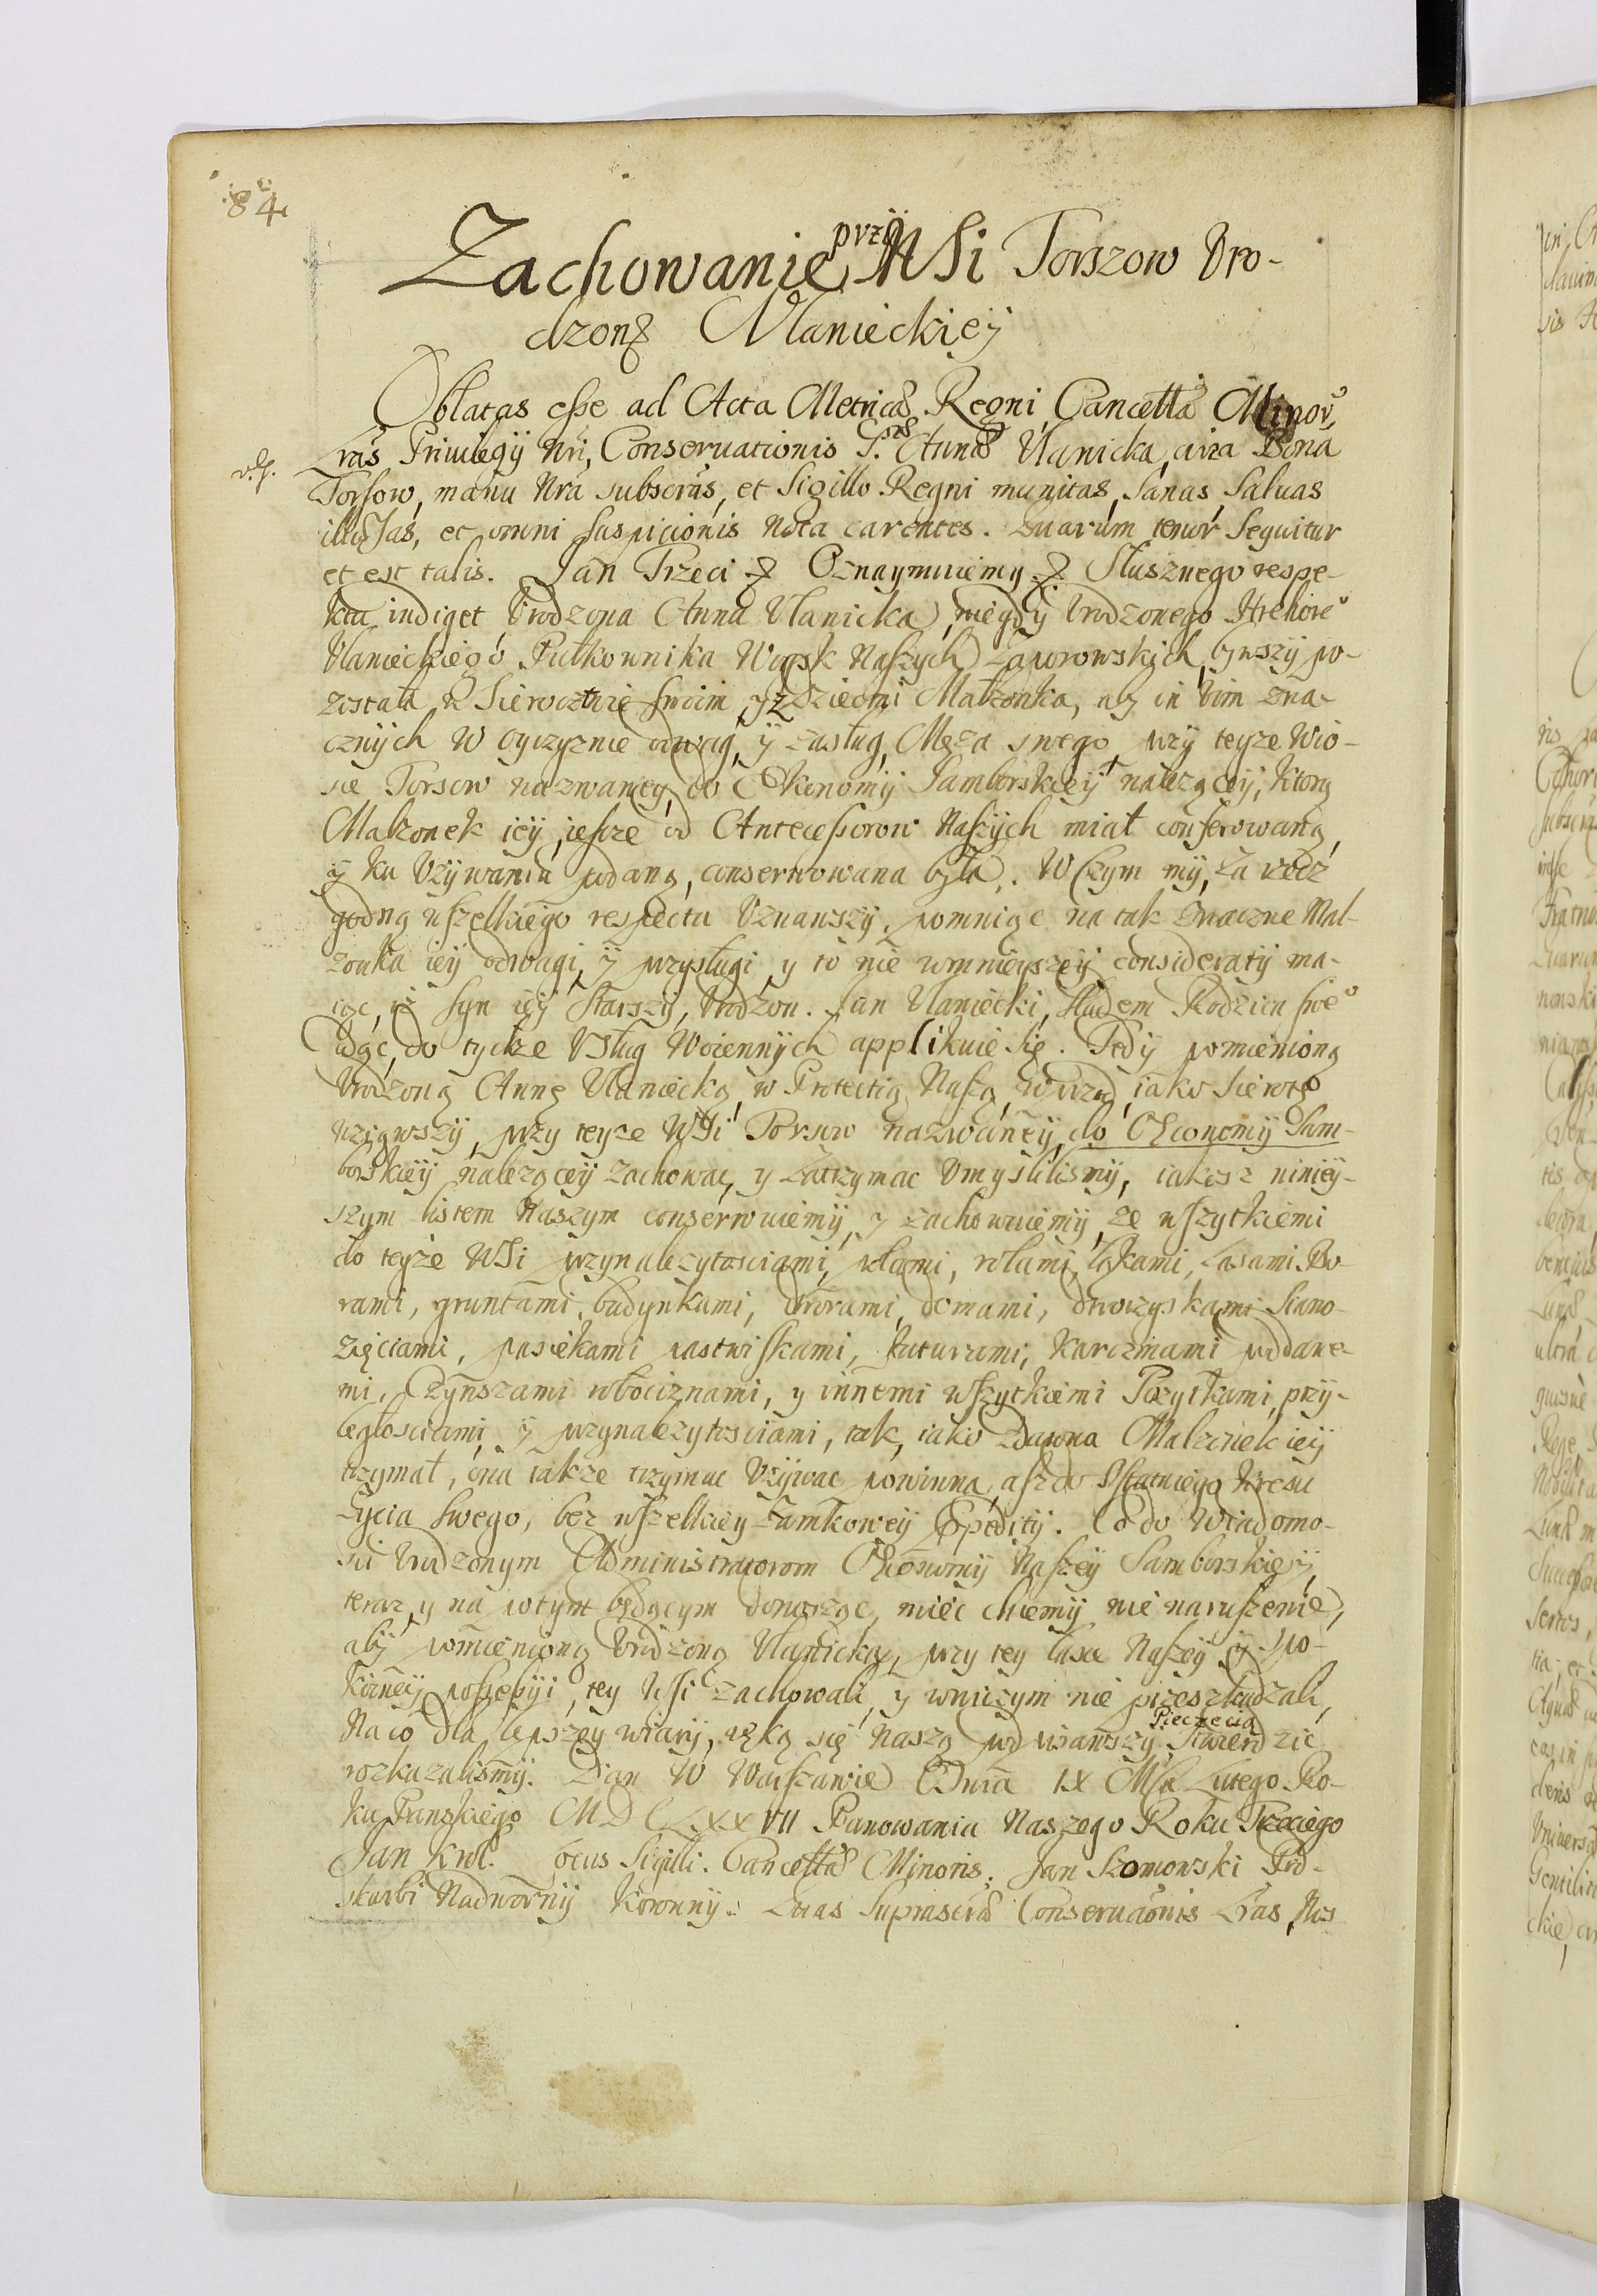 84
Zachowanie przÿ WSi Torszow Vro-
dzonę Vlanieckieÿ
Oblatas esse ad Acta Metricæ Regni Cancellæ Minor,
Lras Privilegÿ Nri, Conseruationis G. Annæ Vlanicka, circa Bona
Torsow, manu Nra subscras, et Sigillo Regni munitas, Sanas, Saluas
illæsas, et omni suspicionis nota carentes. Quarum tenor sequitur
et est talis. Jan Trzeci & Oznaymuiemy & Słusznego respe-
ktu indiget Vrodzona Anna Vlanicka, niegdÿ Vrodzonego Hrehore°
Vlanieckiego Pułkownika Woysk Naszych Zaporowskich, bywszÿ po-
została w Sieroctwie swoim, y z dziecmi Małzonka, abÿ in Vim zna-
cznÿch w oyczyznie odwag, ÿ zasług Męza swego przÿ teyze Wio-
sce Torsow nazwaneÿ, do Œkonomÿ Samborskieÿ nalezącÿ, ktorą
Malzonek ieÿ, iescze od Antecessorow Naszÿch miał conferowaną,
ÿ ku Vzÿwaniu podaną, conserwowana była. W czym mÿ, za rzecz
godną wszelkiego respectu Vznawszÿ, pomniąc na tak znaczne Mal-
zonka ieÿ odwagi, ÿ przysługi, y to nie wmnieyszeÿ consideratÿ ma-
iąc, iz syn ieÿ starszÿ, Vrodzon. Jan Vlaniecki, sladem Rodzica swe°
idąc, do tychze Vsług Woiennÿch applikuie się. Tedÿ pomienioną
Vrodzoną Annę Vlaniecką, w Protectią Naszą, iako Sierotę
wziąwszÿ, przy teyze WSi Torsow nazwaneÿ, do Œconomÿ Sam-
borskieÿ nalezącÿ zachowac, y zatrzymac Vmyslilismÿ, iakosz niniey-
szym listem Naszym conserwuiemÿ, y zachowuiemÿ, ze wszytkiemi
do teyze WSi przynalezytosciami, polami, rolami, łąkami, Lasami, Bo-
rami, gruntami, budynkami, dworami, domami, dworzyskami, Siano-
zęciami, pasiekami, pastwiskami, futurami, karczmami, poddane-
mi, Czÿnszami, robociznami, y innemi wszytkiemi Pozytkami, przÿ-
ległosciami, ÿ przynalezytosciami, tak, iako zdawna Malzonek ieÿ
trzymał, ona takze trzymac Vzÿwac powinna, asz do Ostatniego kresu
zycia swego, bez wszelkieÿ zamkoweÿ Expeditÿ. Co do Wiadomo-
sci Vrodzonym Administratorom Œkonomÿ Naszeÿ Samborskieÿ,
teraz, y na potym będącym donosząc, miec chcemÿ nienaruszenie,
abÿ pomienioną Vrodzoną Vlanicką, przy tey łasce Naszeÿ ÿ spo-
koyneÿ possessÿi, tey WSi zachowali, y wniczym nie przeszkadzali,
Na co dla lepszey wiarÿ, ręką się Naszą podpisawszÿ, Pieczęcią Stwierdzic
rozkazalismÿ. Dan W Warszawie Dnia IX Msca Lutego Ro-
ku Panskiego MDCLXXVII Panowania Naszego Roku Trzeciego
Jan Krol. Locus Sigilli. Cancellæ Minoris. Jan Szomowski Pod-
skarbi Nadwornÿ Koronnÿ. Quas Suprascras Conseruaonis Lras, Nos